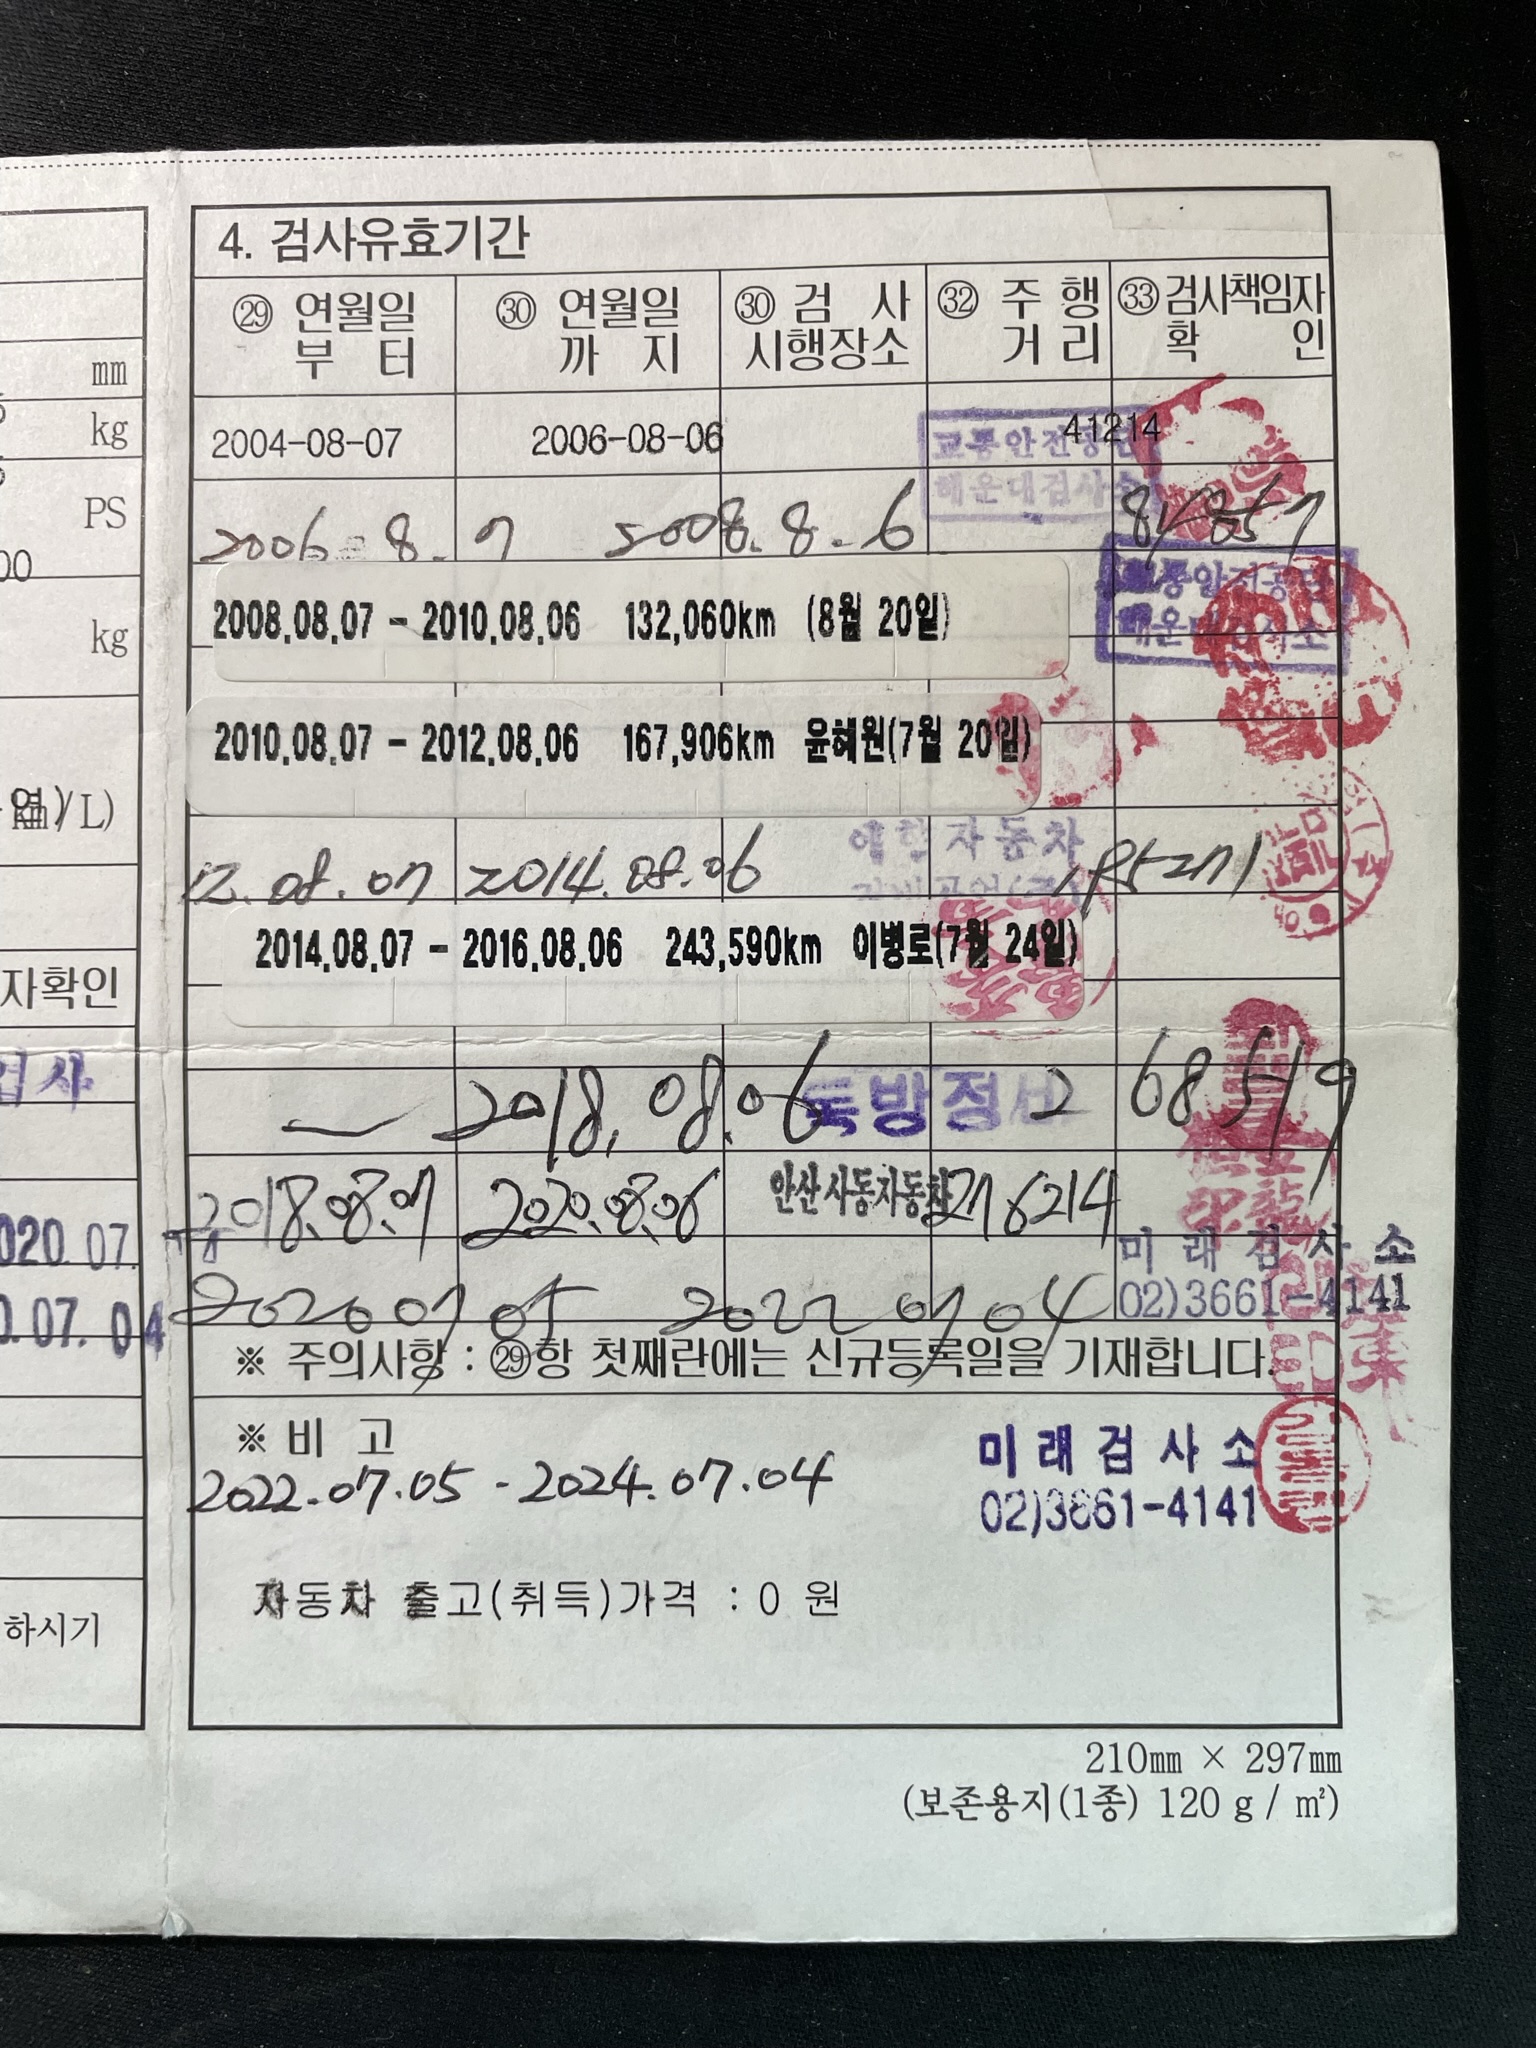 mm
kg
PS
00
kg
/L)
자확인
검사
020.07.
0.07.04
하시기
4. 검사유효기간
㉙ 연월일 부 터 ㉚ 연월일 까 지 ㉚ 검 사 시행장소 ㉜ 주 행 거 리 ㉝ 검사책임자 확 인
2004-08-07 2006-08-06 41214
교통안전공단
해운대검사소
2006. 8. 7 2008. 8. 6
교통안전공단
해운대검사소
2008.08.07 - 2010.08.06 132,060km (8월 20일)
2010.08.07 - 2012.08.06 167,906km 윤혜원(7월 20일)
자동차
12.08.07 2014.08.06 195271
2014.08.07 - 2016.08.06 243,590km 이병로(7월 24일)
2018.08.06 268519
2018.08.07 2020.08.06 안산사동자동차 276214
미래검사소
02)3661-4141
2020 07 05 2022 07 04
※ 주의사항 : ㉙항 첫째란에는 신규등록일을 기재합니다.
※ 비 고
2022.07.05 - 2024.07.04
미래검사소
02)3661-4141
자동차 출고(취득)가격 : 0 원
210㎜ × 297㎜
(보존용지(1종) 120 g / ㎡)